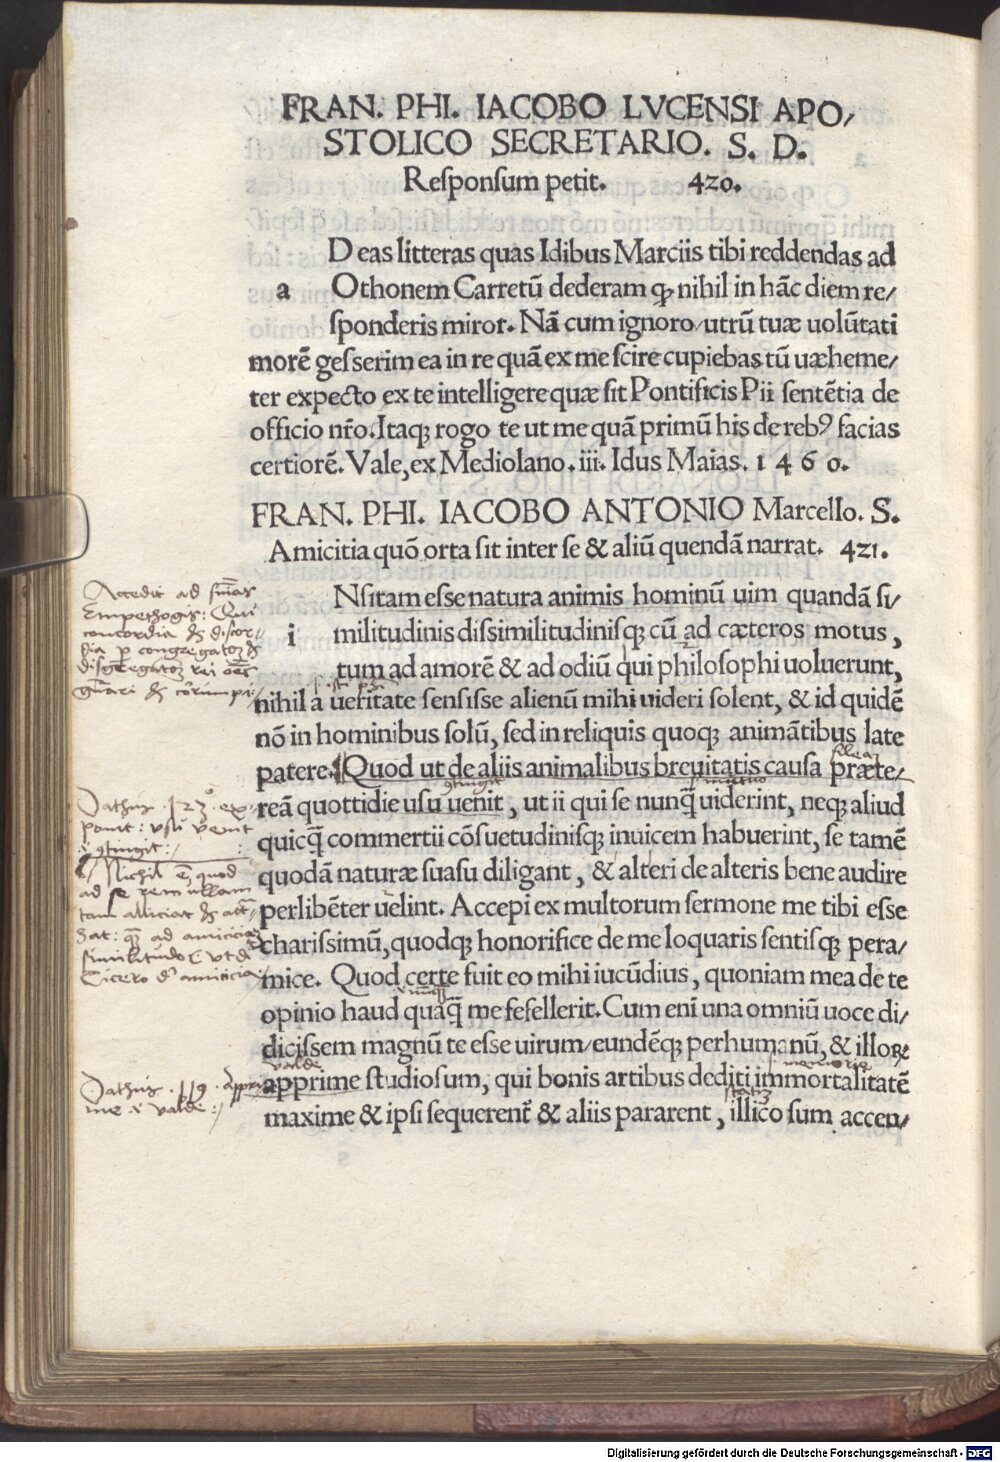 FRAN. PHI. IACOBO LVCENSI APO/
STOLICO SECRETARIO. S. D.
Reſponſum petit. 420.
D eas litteras quas Idibus Marciis tibi reddendas ad
a Othonem Carretū dederam ꝙ nihil in hāc diem re/
ſponderis miror. Nā cum ignoro/utrū tuæ uolūtati
morē geſſerim ea in re quā ex me ſcire cupiebas tū uæheme/
ter expecto ex te intelligere quæ ſit Pontificis Pii ſentētia de
officio nr̄o. Itaqꝫ rogo te ut me quā primū his de rebꝰ facias
certiorē. Vale, ex Mediolano. iii. Idus Maias. 1460.
FRAN. PHI. IACOBO ANTONIO Marcello. S.
Amicitia quō orta ſit inter ſe & aliū quendā narrat. 421.
Nſitam eſſe natura animis hominū uim quandā ſi/
i militudinis diſſimilitudiniſqꝫ cū ad cæteros motus,
tum ad amorē & ad odiū q̇ui philoſophi uoluerunt,
nihil a ueritate ſenſiſſe alienū mihi uideri ſolent, & id quidē
nō in hominibus ſolū, ſed in reliquis quoqꝫ animātibus late
patere. Quod ut de aliis animalibus breuitatis cauſa præte/
reā quottidie uſu uenit, ut ii qui ſe nunq̄ uiderint, neqꝫ aliud
quicq̄ commertii cōſuetudiniſqꝫ inuicem habuerint, ſe tamē
quodā naturæ ſuaſu diligant, & alteri de alteris bene audire
perlibēter uelint. Accepi ex multorum ſermone me tibi eſſe
chariſſimū, quodqꝫ honorifice de me loquaris ſentiſqꝫ pera/
mice. Quod certe fuit eo mihi iucūdius, quoniam mea de te
opinio haud quāq̄ me fefellerit. Cum eni una omniū uoce di/
diciſſem magnū te eſſe uirum/eundēqꝫ perhumanū, & illoꝝ
apprime ſtudioſum, qui bonis artibus dediti immortalitatē
maxime & ipſi ſequerent̄ & aliis pararent, illico ſum accen/
Accedit ad
Empethogis:
concordia
dia congregatoꝝ
disgregatoꝝ rei
Dathus
ponit: usu venit
contingit
Nichil quod
ad se rem ullam
tam alliciat
ad amiciciam
similitudo
Cicero amicicia
Dathus
me valde
valde
Digitalisierung gefördert durch die Deutsche Forschungsgemeinschaft - DFG